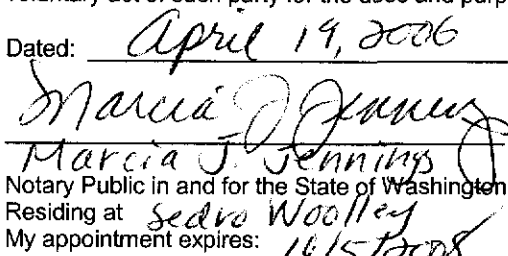 voluntary act of such party for the uses and purp
Dated: April 19, 2006
Marcia J Jennings
Marcia J. Jennings
Notary Public in and for the State of Washington
Residing at Sedro Woolley
My appointment expires: 10/5/2008